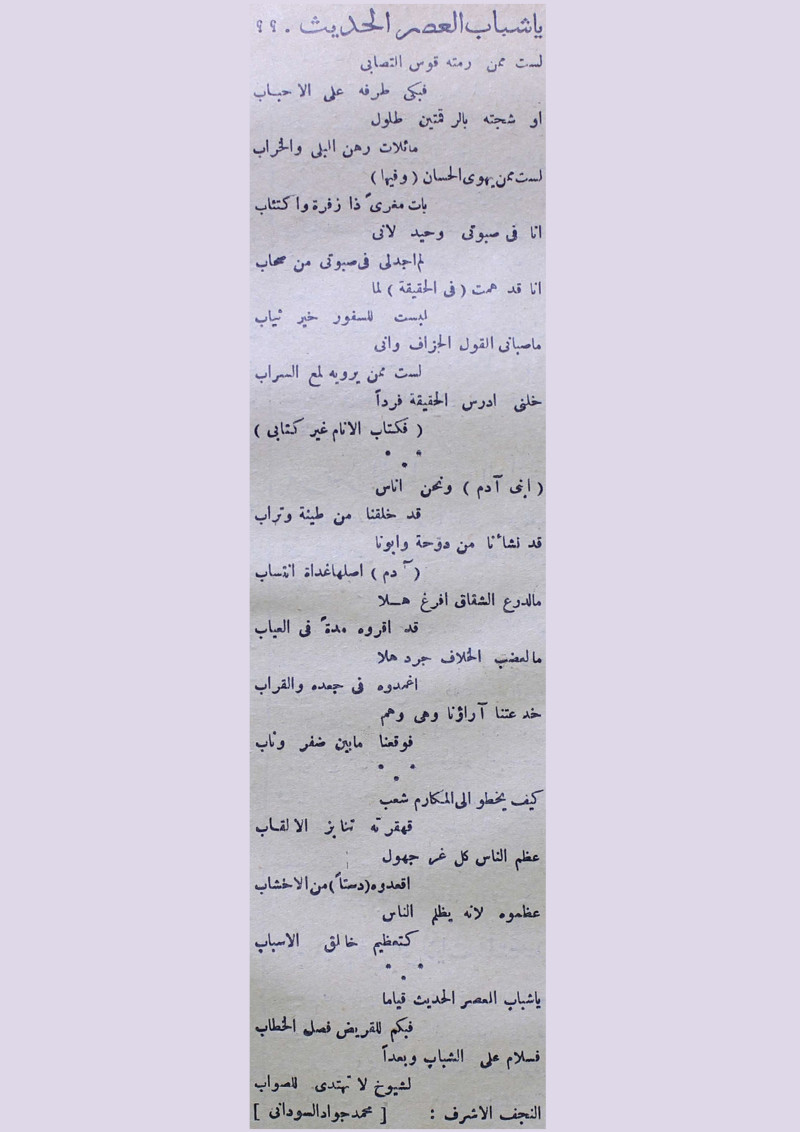 ياشباب العصر الحديث . ؟؟
لست ممن رمته قوس التصابى
فبكى طرفه على الاحباب
او شجته بالرقمتين طلول
ماثلات رهن البلى والخراب
لست ممن يهوى الحسان ( وفيها )
بات مغرىً ذا زفرة واكتئاب
انا فى صبوتى وحيد لانى
لم اجد لى فى صبوتى من صحاب
انا قد همت ( فى الحقيقة ) لما
لبست للسفور خير ثياب
ماصبانى القول الجزاف وانى
لست ممن يرويه لمع السراب
خلنى ادرس الحقيقة فرداً
( فكتاب الانام غير كتابى )
* * *
( ابنى آدم ) ونحن اناس
قد خلقنا من طينة وتراب
قد نشأنا من دوحة وابونا
( آدم ) اصلها غداة انتساب
مالدرع الشقاق افرغ هلا
قد اقروه مدةً فى العياب
مالعضب الخلاف جرد هلا
اغمدوه فى جعده والقراب
خدعتنا آراؤنا وهى وهم
فوقعنا مابين ضفر وناب
* * *
كيف يخطو الى المكارم شعب
قهقرته تنابز الالقاب
عظم الناس كل غر جهول
اقعدوه (دستاً) من الاخشاب
عظموه لانه يظلم الناس
كتعظيم خالق الاسباب
* * *
ياشباب العصر الحديث قياما
فبكم للقريض فصل الخطاب
فسلام على الشباب وبعداً
لشيوخ لا تهتدى للصواب
النجف الاشرف : [ محمدجوادالسودانى ]